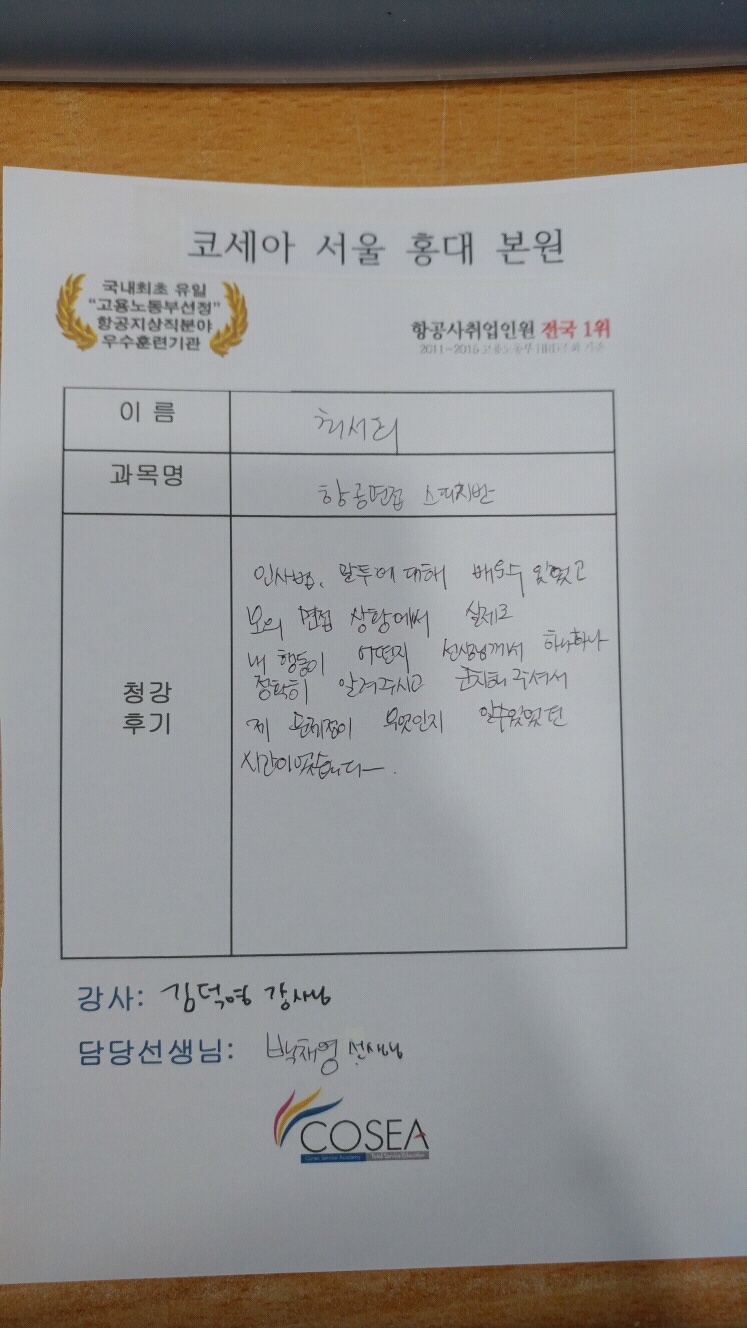 코세아 서울 홍대 본원
국내최초 유일
“고용노동부선정”
항공지상직분야
우수훈련기관
항공사취업인원 전국 1위
2011~2016 고용노동부 HRD 기준
이 름
최서희
과목명
항공면접 스피치반
청강
후기
인사법, 말투에 대해 배울수 있었고
모의 면접 상황에서 실제로
내 행동이 어떤지 선생님께서 하나하나
정확히 알려주시고 해 주셔서
제 문제점이 무엇인지 알수있었던
시간이였습니다.
강사: 김덕영 강사님
담당선생님: 백채영 선생님
COSEA
Korea Service Academy Total Service Education